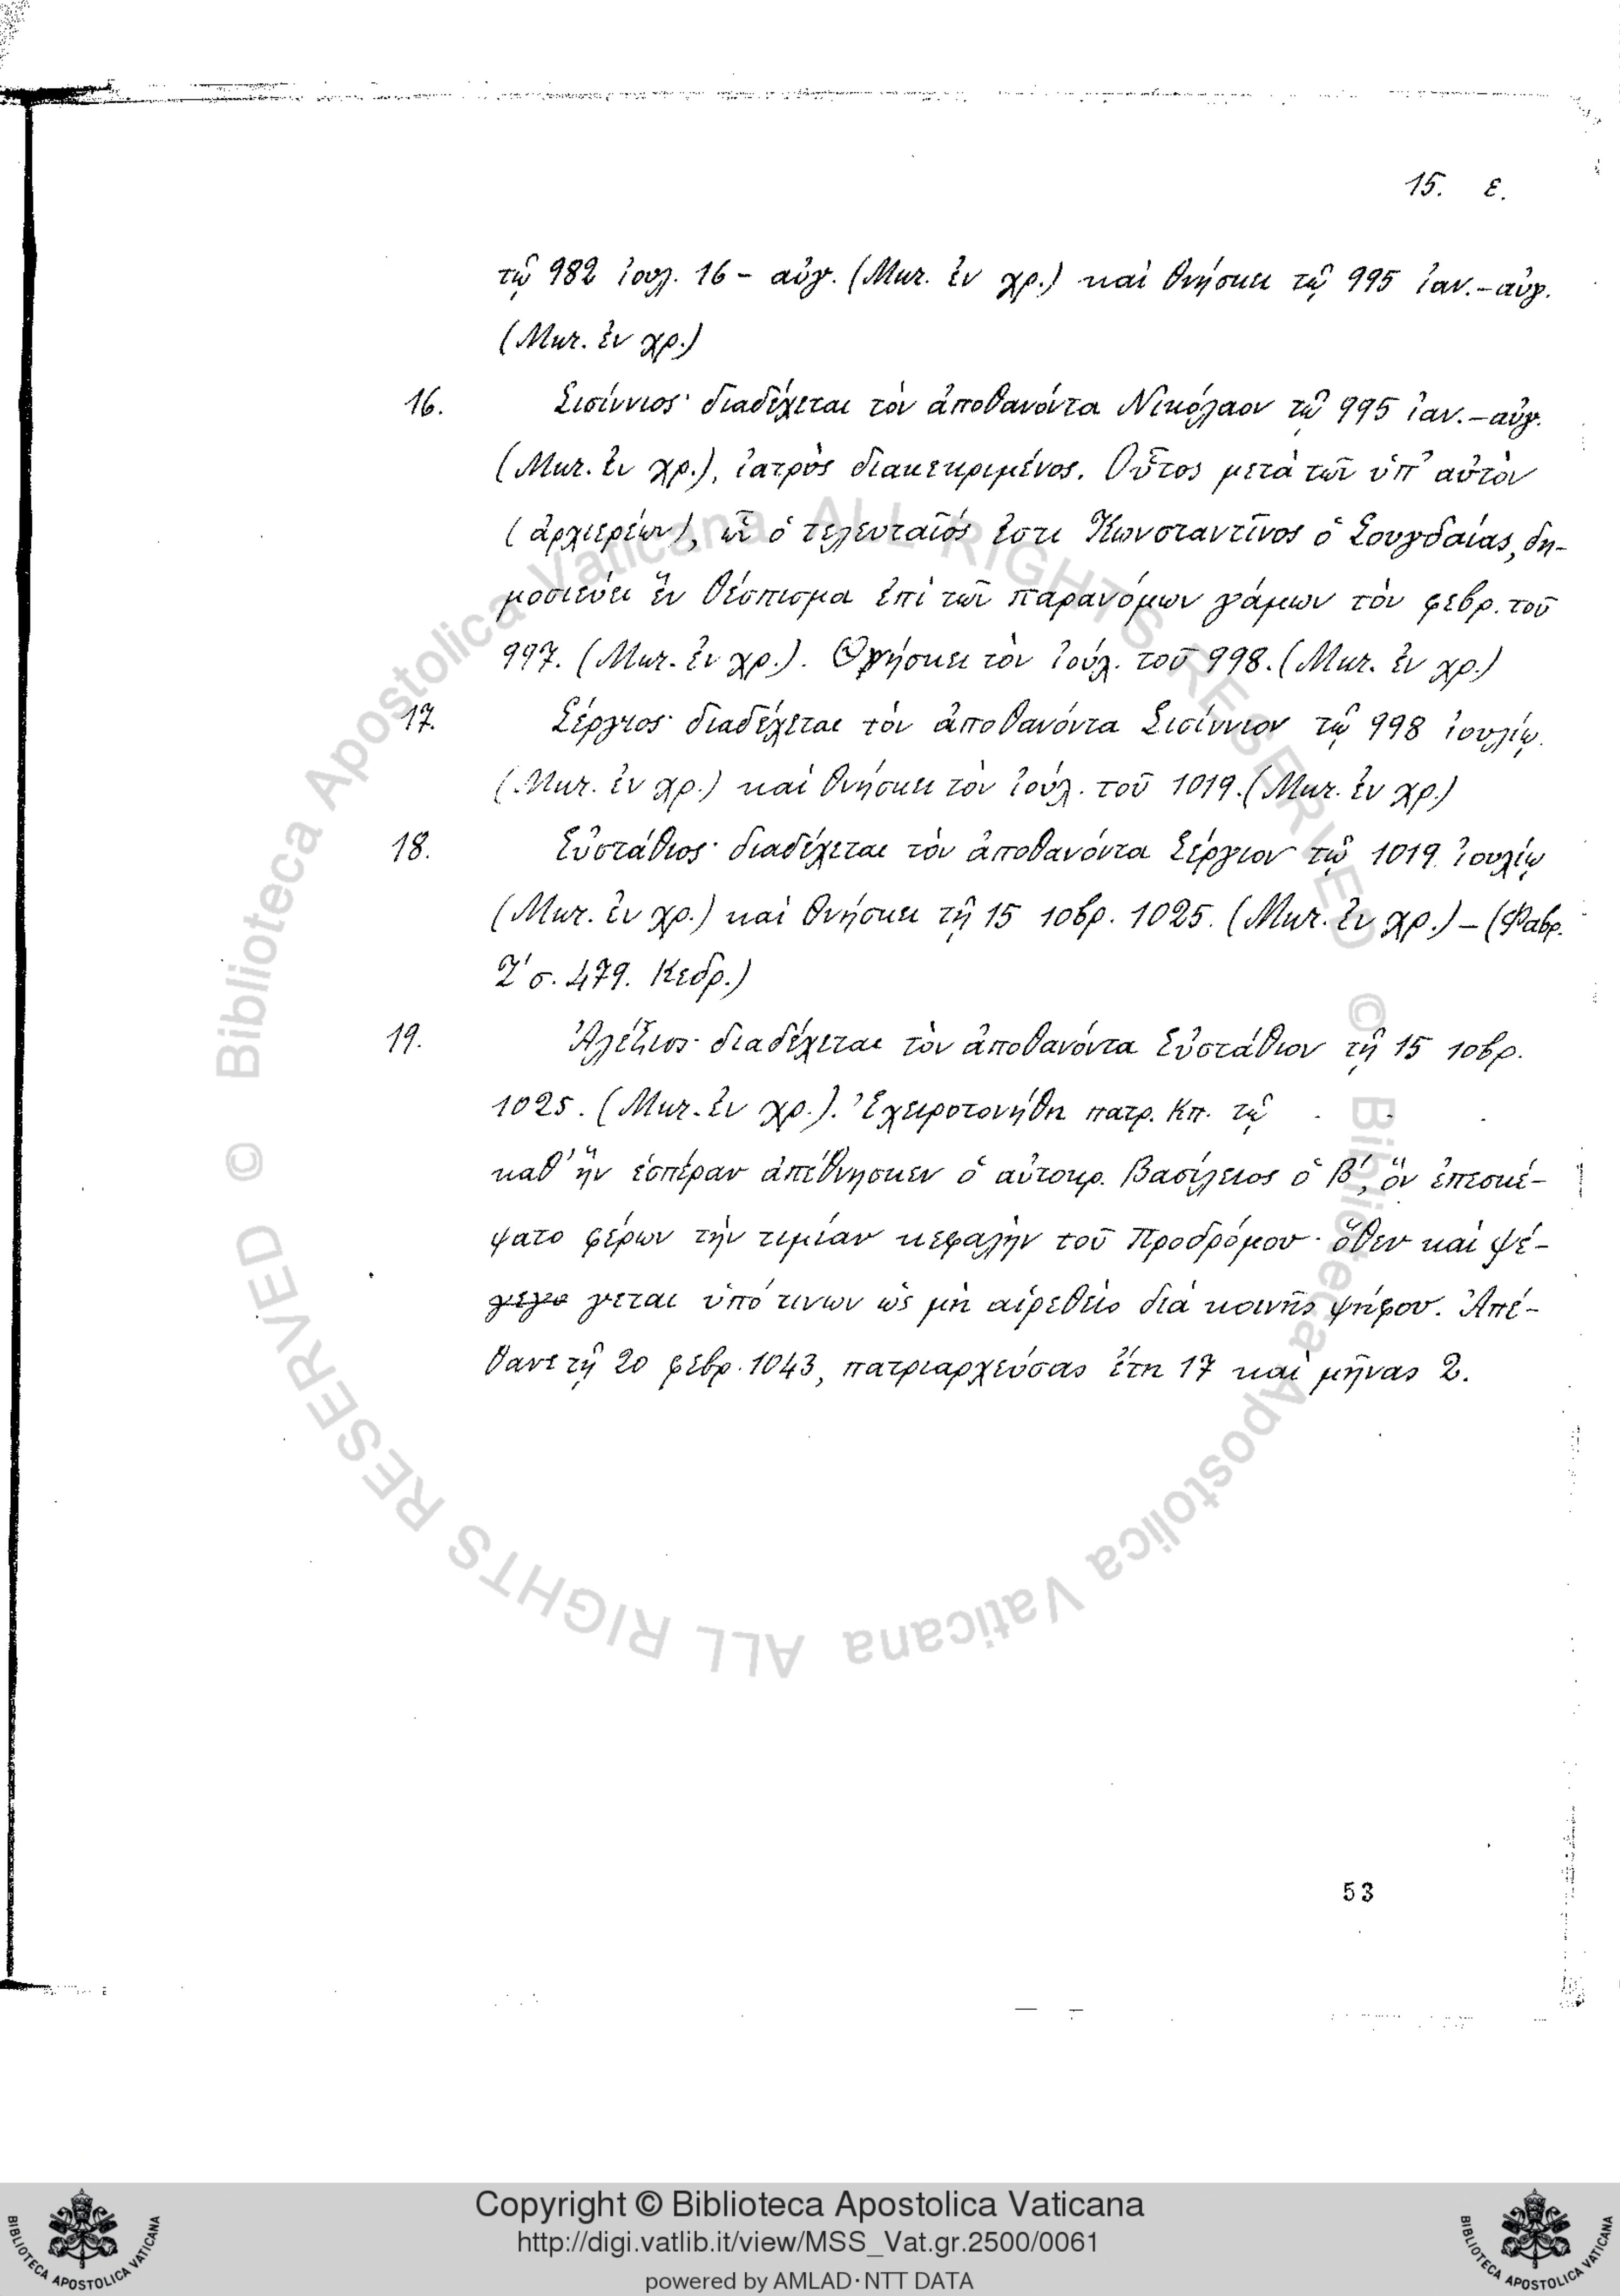 15. ε.
τῷ 982 ἰουλ. 16 - αὐγ. (Μικ. ἐν χρ.) καὶ θνήσκει τῷ 995 ἰαν.-αὐγ.
(Μικ. ἐν χρ.)
16. Σισίννιος· διαδέχεται τὸν ἀποθανόντα Νικόλαον τῷ 995 ἰαν.-αὐγ.
(Μικ. ἐν χρ.), ἰατρὸς διακεκριμένος. Οὗτος μετὰ τῶν ὑπ' αὐτὸν
(ἀρχιερέων), ὧν ὁ τελευταῖός ἐστι Κωνσταντῖνος ὁ Σουγδαίας, δη-
μοσιεύει ἓν θέσπισμα ἐπὶ τῶν παρανόμων γάμων τὸν φεβρ. τοῦ
997. (Μικ. ἐν χρ.). Θνήσκει τὸν ἰούλ. τοῦ 998. (Μικ. ἐν χρ.)
17. Σέργιος· διαδέχεται τὸν ἀποθανόντα Σισίννιον τῷ 998 ἰουλίῳ.
(Μικ. ἐν χρ.) καὶ θνήσκει τὸν ἰούλ. τοῦ 1019. (Μικ. ἐν χρ.)
18. Εὐστάθιος· διαδέχεται τὸν ἀποθανόντα Σέργιον τῷ 1019 ἰουλίῳ
(Μικ. ἐν χρ.) καὶ θνήσκει τῇ 15 10βρ. 1025. (Μικ. ἐν χρ.) - (Φαβρ.
Ζ' σ. 479. Κεδρ.)
19. Ἀλέξιος· διαδέχεται τὸν ἀποθανόντα Εὐστάθιον τῇ 15 10βρ.
1025. (Μικ. ἐν χρ.). Ἐχειροτονήθη πατρ. Κπ. τῷ
καθ' ἣν ἑσπέραν ἀπέθνησκεν ὁ αὐτοκρ. Βασίλειος ὁ Β', ὃν ἐπεσκέ-
ψατο φέρων τὴν τιμίαν κεφαλὴν τοῦ Προδρόμου· ὅθεν καὶ ψέ-
γεται ὑπό τινων ὡς μὴ αἱρεθεὶς διὰ κοινῆς ψήφου. Ἀπέ-
θανε τῇ 20 φεβρ. 1043, πατριαρχεύσας ἔτη 17 καὶ μῆνας 2.
53
© Biblioteca Apostolica Vaticana ALL RIGHTS RESERVED
© Biblioteca Apostolica Vaticana ALL RIGHTS RESERVED
Copyright © Biblioteca Apostolica Vaticana
http://digi.vatlib.it/view/MSS_Vat.gr.2500/0061
powered by AMLAD·NTT DATA
BIBLIOTECA APOSTOLICA VATICANA
BIBLIOTECA APOSTOLICA VATICANA